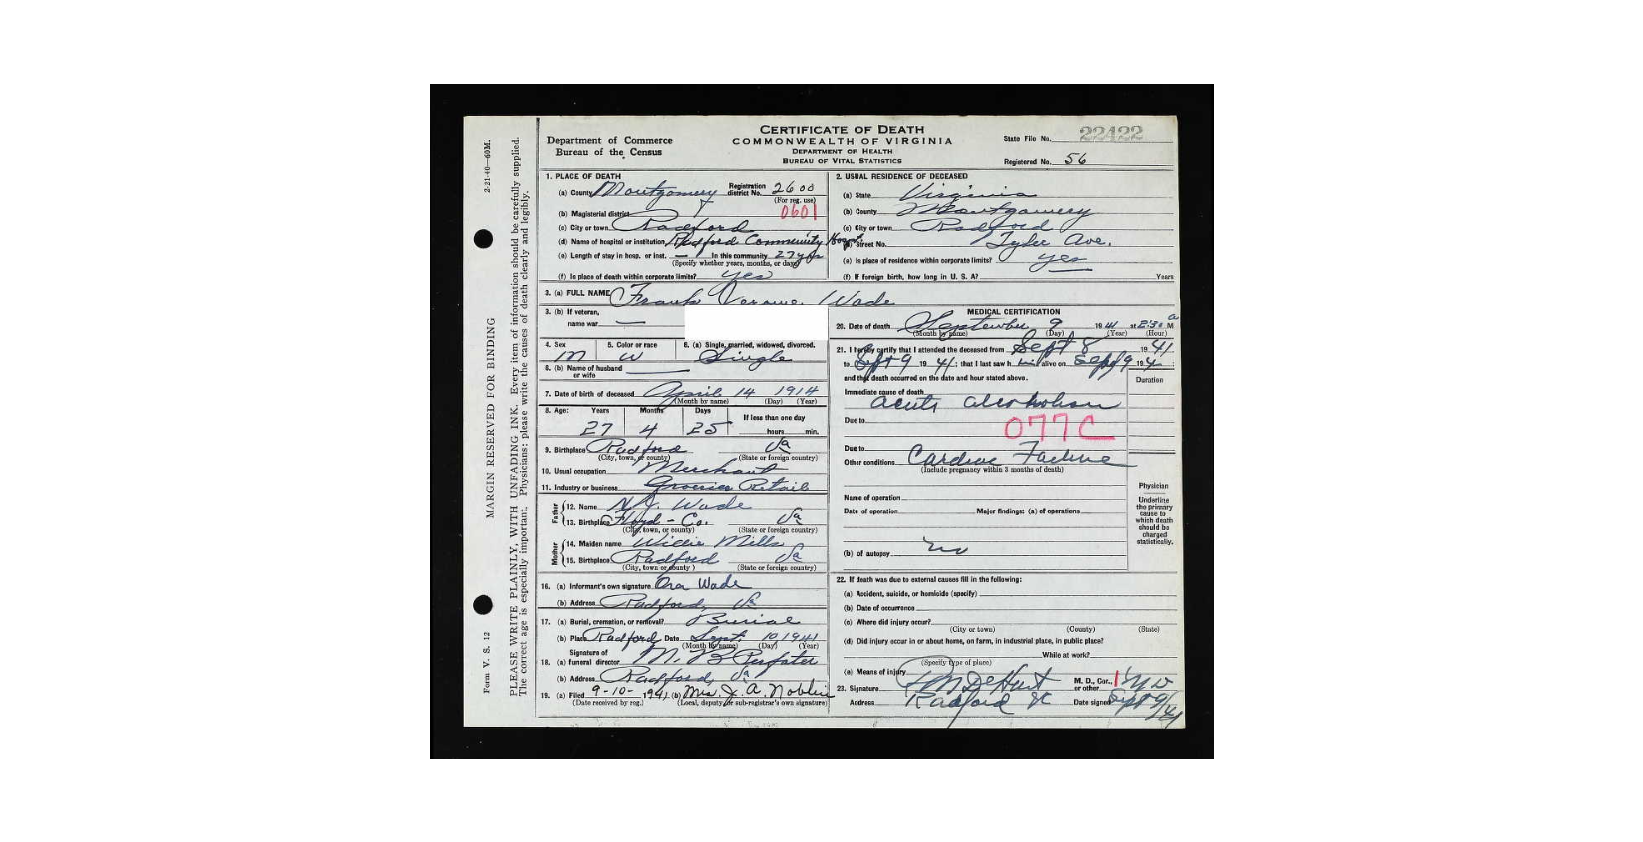 2-21-40—60M.
MARGIN RESERVED FOR BINDING
Form V. S. 12
PLEASE WRITE PLAINLY, WITH UNFADING INK. Every item of information should be carefully supplied.
The correct age is especially important. Physicians: please write the causes of death clearly and legibly.
Department of Commerce
Bureau of the Census
CERTIFICATE OF DEATH
COMMONWEALTH OF VIRGINIA
DEPARTMENT OF HEALTH
BUREAU OF VITAL STATISTICS
State File No. 22422
Registered No. 56
1. PLACE OF DEATH
(a) County Montgomery Registration district No. 2600
(For reg. use)
(b) Magisterial district 0601
(c) City or town Radford
(d) Name of hospital or institution Radford Community Hospt.
(e) Length of stay in hosp. or inst. — In this community 27 yrs
(Specify whether years, months, or days)
(f) Is place of death within corporate limits? yes
2. USUAL RESIDENCE OF DECEASED
(a) State Virginia
(b) County Montgomery
(c) City or town Radford
(d) Street No. Tyler Ave.
(e) Is place of residence within corporate limits? yes
(f) If foreign birth, how long in U. S. A.? Years
3. (a) FULL NAME Frank Wade
3. (b) If veteran,
name war —
4. Sex M
5. Color or race W
6. (a) Single, married, widowed, divorced. Single
6. (b) Name of husband
or wife
7. Date of birth of deceased April 14 1914
(Month by name) (Day) (Year)
8. Age: Years Months Days If less than one day
27 4 25 hours min.
9. Birthplace Radford Va
(City, town, or county) (State or foreign country)
10. Usual occupation Merchant
11. Industry or business Groceries Retail
Father
12. Name Wade
13. Birthplace Floyd - Co. Va
(City, town, or county) (State or foreign country)
Mother
14. Maiden name Willie Mills
15. Birthplace Radford Va
(City, town or county) (State or foreign country)
16. (a) Informant's own signature Ora Wade
(b) Address Radford, Va
17. (a) Burial, cremation, or removal? Burial
(b) Place Radford Date Sept. 10 1941
(Month by name) (Day) (Year)
Signature of
18. (a) funeral director M. B.
(b) Address Radford, Va
19. (a) Filed 9-10- 1941 (b) Mrs. J. A. Noblin
(Date received by reg.) (Local, deputy or sub-registrar's own signature)
MEDICAL CERTIFICATION
20. Date of death September 9 1941 at 2:30 a M
(Month by name) (Day) (Year) (Hour)
21. I hereby certify that I attended the deceased from Sept 8 1941
to Sept 9 1941; that I last saw him alive on Sept 9 1941
and that death occurred on the date and hour stated above.
Duration
Immediate cause of death
acute alcoholism
Due to 077C
Due to
Other conditions Cardiac Failure
(Include pregnancy within 3 months of death)
Name of operation
Date of operation Major findings: (a) of operations
(b) of autopsy no
Physician
Underline
the primary
cause to
which death
should be
charged
statistically.
22. If death was due to external causes fill in the following:
(a) Accident, suicide, or homicide (specify)
(b) Date of occurrence
(c) Where did injury occur?
(City or town) (County) (State)
(d) Did injury occur in or about home, on farm, in industrial place, in public place?
While at work?
(Specify type of place)
(e) Means of injury
23. Signature DeHart M. D., Cor., or other MD
Address Radford Va Date signed Sept 9/41